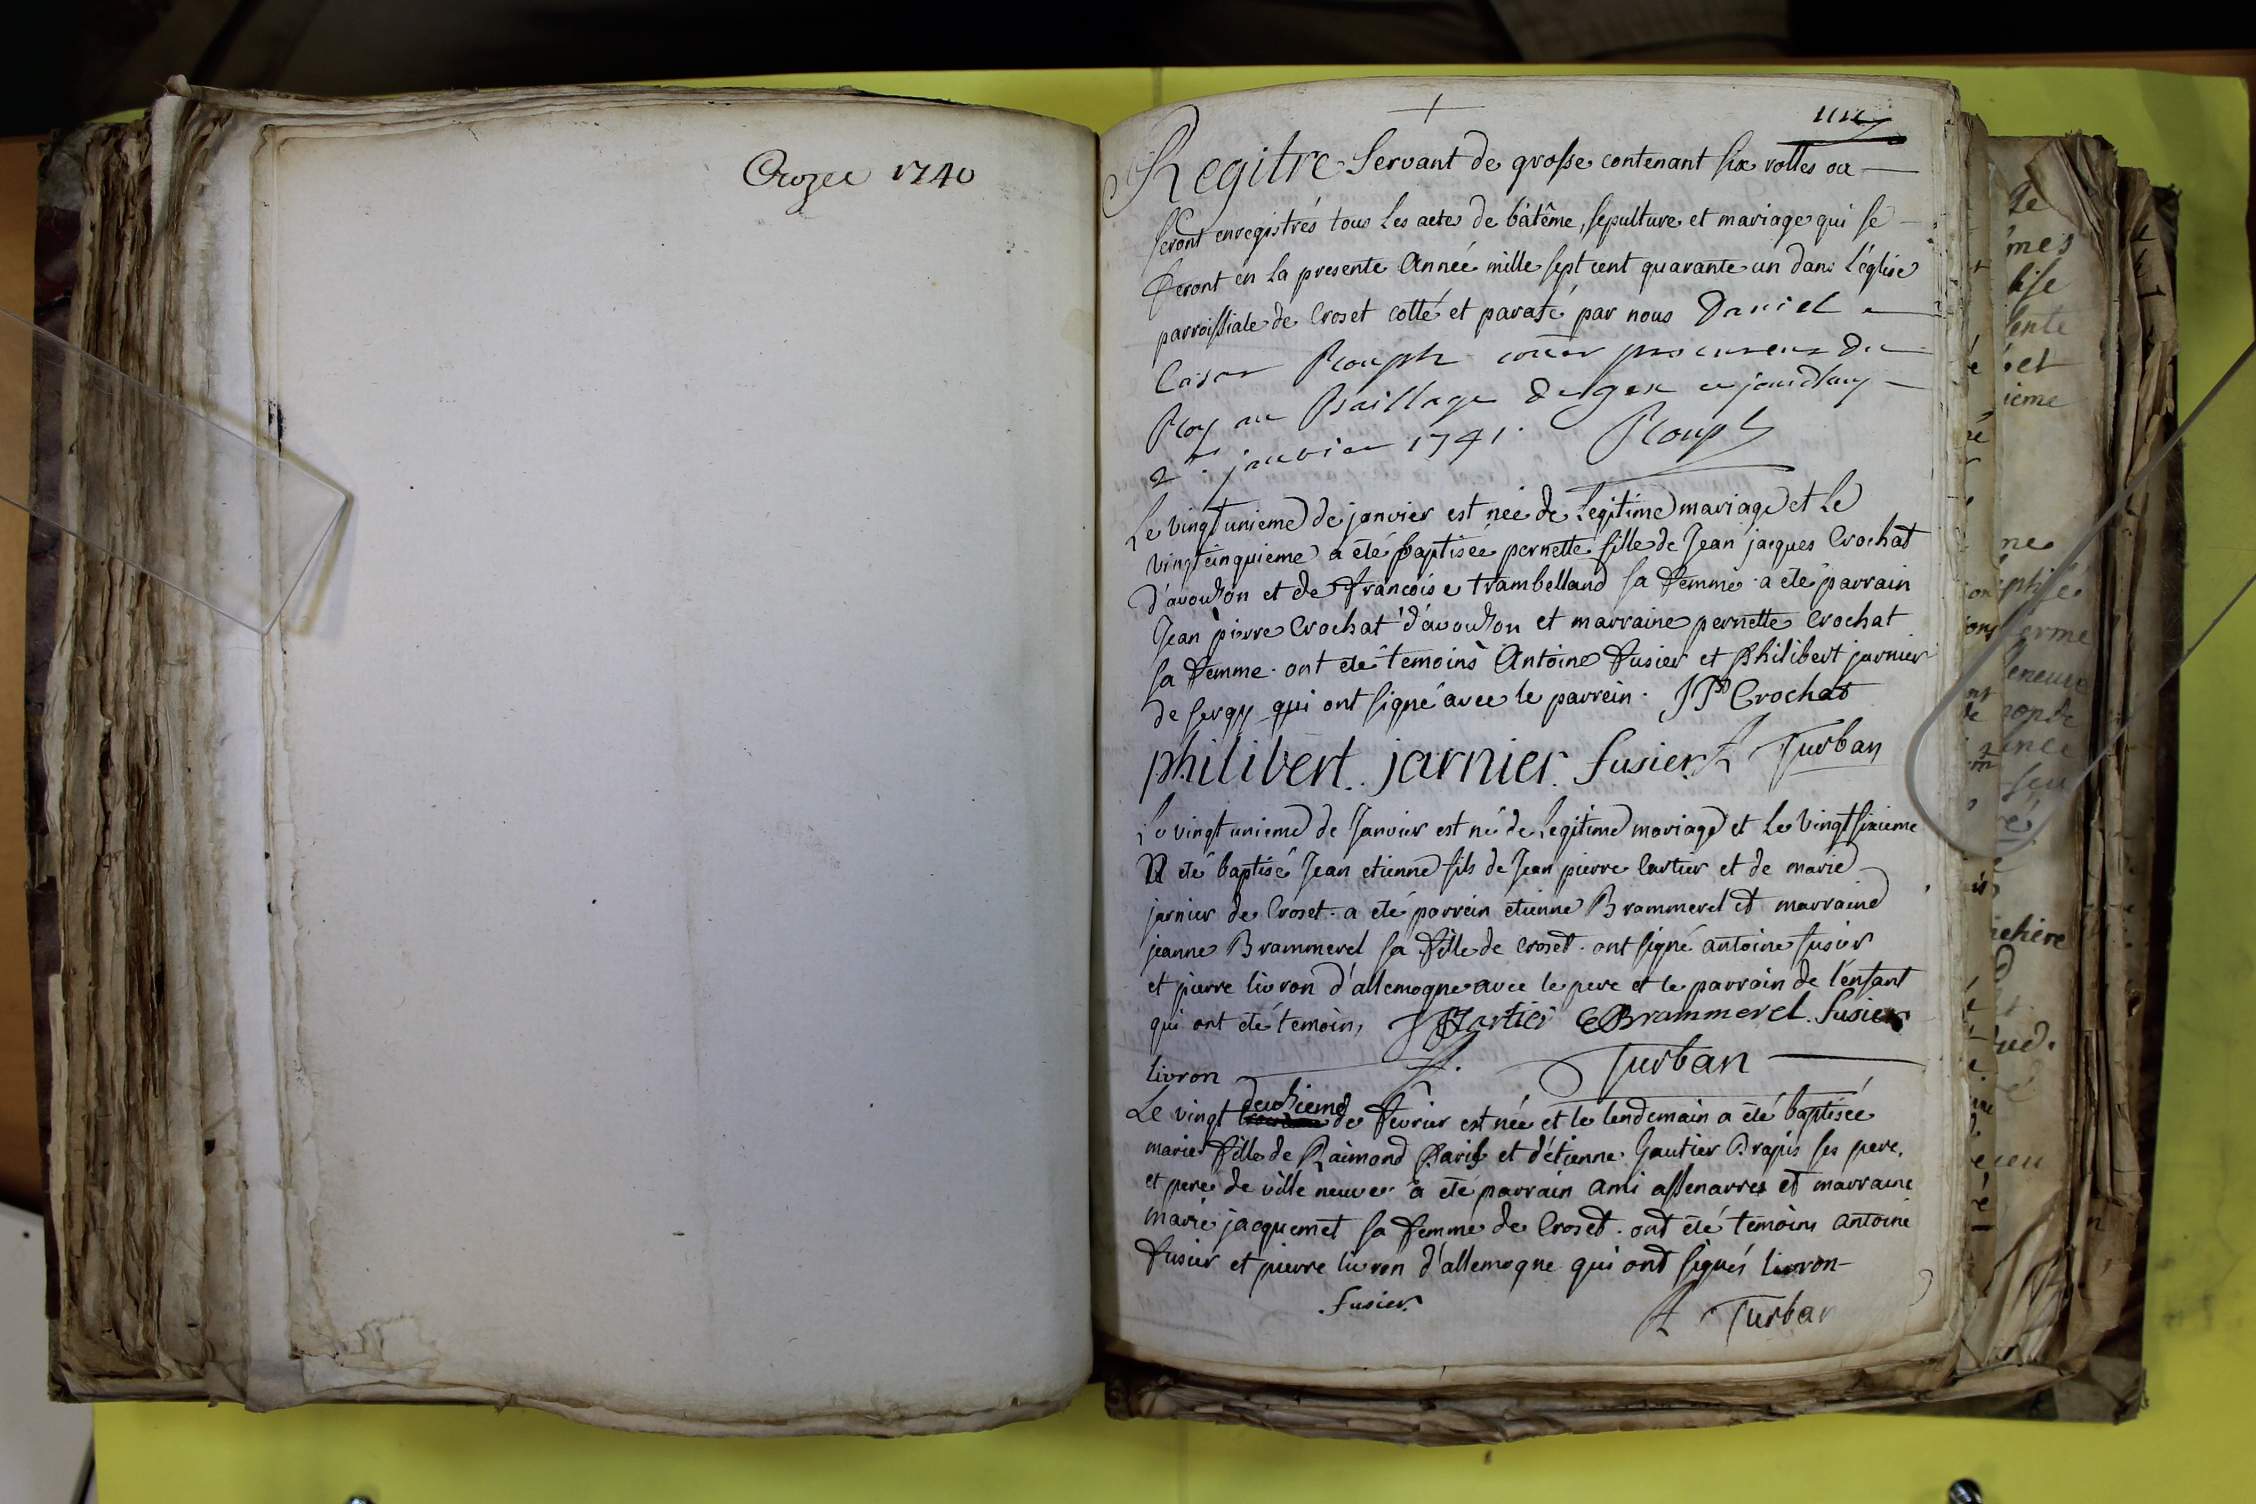 Crozet 1740
Regitre servant de grosse contenant six rolles ou
seront enregistrés tous les actes de batême, sepulture et mariage qui se
feront en la presente Année mille sept cent quarante un dans l'église
parroissiale de Croset cotté et parafé par nous Daniel
Cesar Rouph procureur du
Roy au Bailliage de gex ce jourdhuy
2me janvier 1741. Rouph
Le vingt unieme de janvier est neé de legitime mariage et le
vingt cinquieme a eté baptisée pernette fille de Jean jacques Crochat
d'avouzon et de francoise trambelland sa femme. a eté parrain
Jean pierre Crochat d'avouzon et marraine pernette Crochat
sa femme. ont eté temoins Antoine fusier et Philibert jarnier
de sergy qui ont signé avec le parrein. JP Crochat
philibert. jarnier. fusier Turban
Le vingt unieme de Janvier est né de legitime mariage et le vingt sixieme
A eté baptisé Jean etienne fils de Jean pierre Cartier et de marie
jarnier de Croset. a eté parrein etienne Brammerel et marraine
jeanne Brammerel sa fille de croset. ont signé antoine fusier
et pierre livron d'allemogne avec le pere et le parrain de l'enfant
qui ont eté temoins, JPCartier EBrammerel. fusier
livron Turban
Le vingt deuzieme de fevrier est neé et le lendemain a eté baptisée
marie fille de Raimond Paris et d'étienne Gautier Drapis ses pere,
et pere de ville neuve. a eté parrain ami assenarres et marraine
marie jacquemet sa femme de Croset. ont eté temoins antoine
fusier et pierre livron d'allemogne qui ont signés livron
fusier. Turban